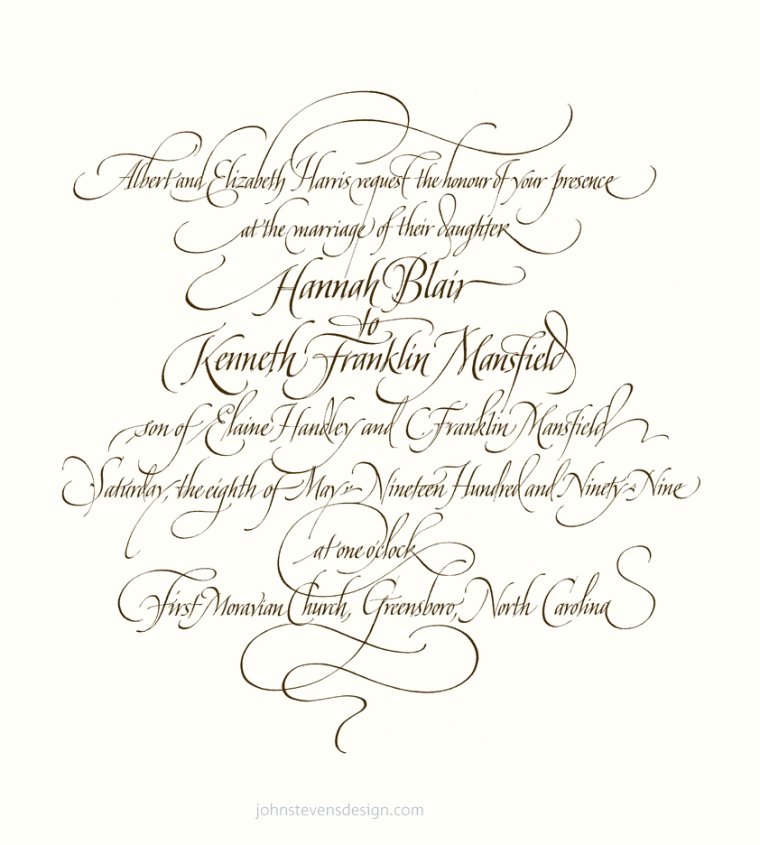 Albert and Elizabeth Harris request the honour of your presence
at the marriage of their daughter
Hannah Blair
to
Kenneth Franklin Mansfield
son of Elaine Handley and C. Franklin Mansfield
Saturday, the eighth of May ~ Nineteen Hundred and Ninety-Nine
at one o'clock
First Moravian Church, Greensboro, North Carolina
johnstevensdesign.com